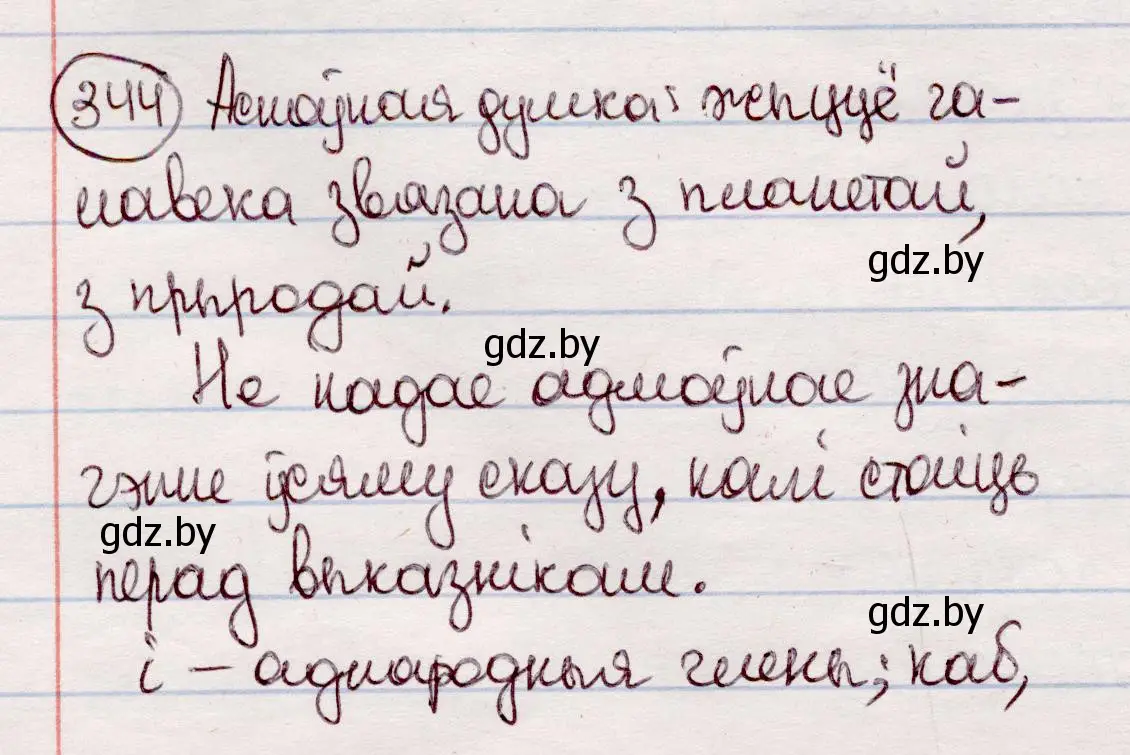 344 Асноўная думка: жыццё ча-
лавека звязана з планетай,
gdz.by
з прыродай.
gdz.by
Не надае адмоўнае зна-
чэнне ўсяму сказу, калі стаіць
gdz.by
перад выказнікам.
gdz.by
і – аднародныя члены; каб,